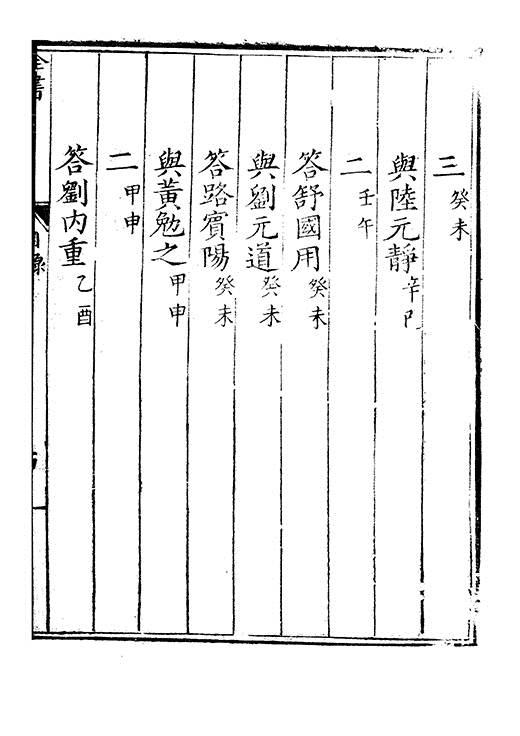 三癸未
與陸元靜辛
二壬午
答舒國用癸未
與劉元道癸未
答路賓陽癸未
與黃勉之甲申
二甲申
答劉内重乙酉
全書
目錄